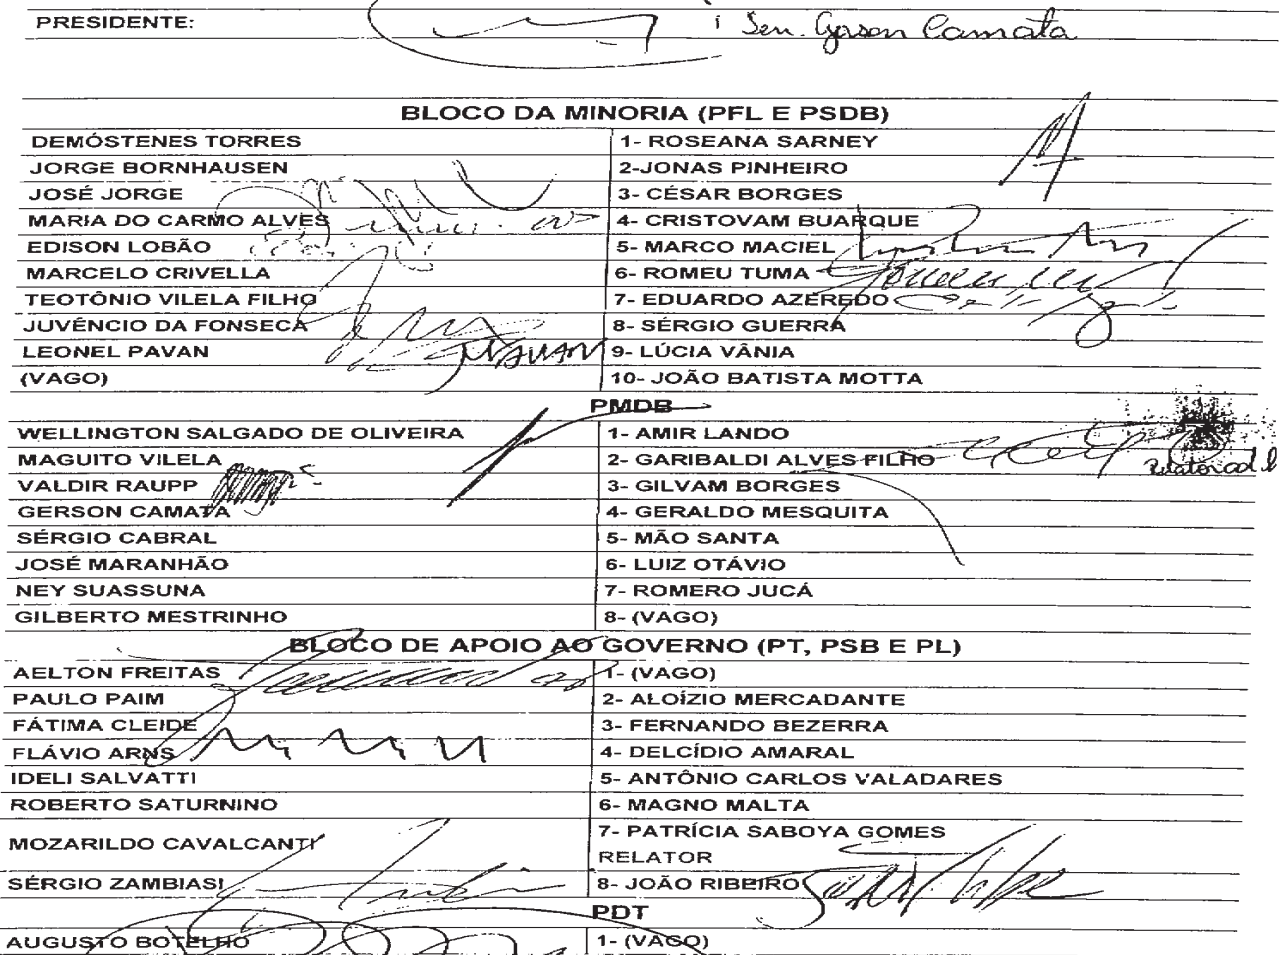 PRESIDENTE: Sen. Gerson Camata
BLOCO DA MINORIA (PFL E PSDB)
DEMÓSTENES TORRES 1- ROSEANA SARNEY
JORGE BORNHAUSEN 2-JONAS PINHEIRO
JOSÉ JORGE 3- CÉSAR BORGES
MARIA DO CARMO ALVES 4- CRISTOVAM BUARQUE
EDISON LOBÃO 5- MARCO MACIEL
MARCELO CRIVELLA 6- ROMEU TUMA
TEOTÔNIO VILELA FILHO 7- EDUARDO AZEREDO
JUVÊNCIO DA FONSECA 8- SÉRGIO GUERRA
LEONEL PAVAN 9- LÚCIA VÂNIA
(VAGO) 10- JOÃO BATISTA MOTTA
PMDB
WELLINGTON SALGADO DE OLIVEIRA 1- AMIR LANDO
MAGUITO VILELA 2- GARIBALDI ALVES FILHO
VALDIR RAUPP 3- GILVAM BORGES
GERSON CAMATA 4- GERALDO MESQUITA
SÉRGIO CABRAL 5- MÃO SANTA
JOSÉ MARANHÃO 6- LUIZ OTÁVIO
NEY SUASSUNA 7- ROMERO JUCÁ
GILBERTO MESTRINHO 8- (VAGO)
BLOCO DE APOIO AO GOVERNO (PT, PSB E PL)
AELTON FREITAS 1- (VAGO)
PAULO PAIM 2- ALOÍZIO MERCADANTE
FÁTIMA CLEIDE 3- FERNANDO BEZERRA
FLÁVIO ARNS 4- DELCÍDIO AMARAL
IDELI SALVATTI 5- ANTÔNIO CARLOS VALADARES
ROBERTO SATURNINO 6- MAGNO MALTA
MOZARILDO CAVALCANTI 7- PATRÍCIA SABOYA GOMES
RELATOR
SÉRGIO ZAMBIASI 8- JOÃO RIBEIRO
PDT
AUGUSTO BOTELHO 1- (VAGO)